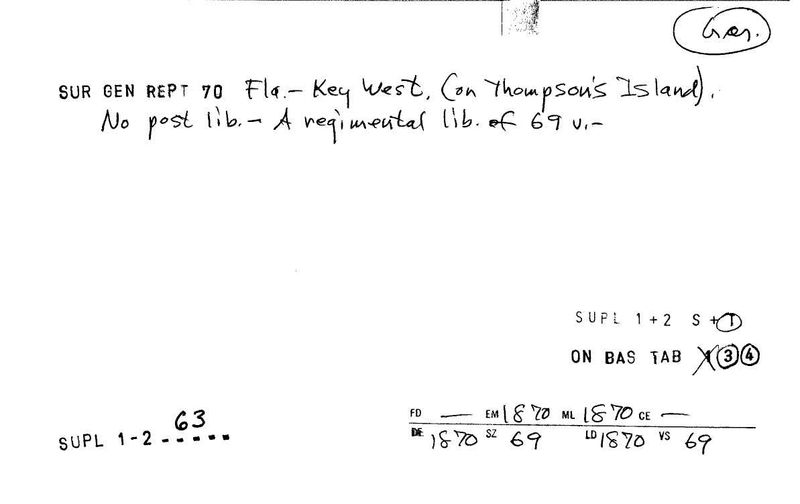 Gen.
SUR GEN REPT 70 Fla.- Key West, (on Thompson's Island).
No post lib. - A regimental lib. of 69 v.-
SUPL 1+2 S+①
ON BAS TAB ③④
FD — EM 1870 ML 1870 CE —
DE 1870 SZ 69 LD 1870 VS 69
SUPL 1-2 63